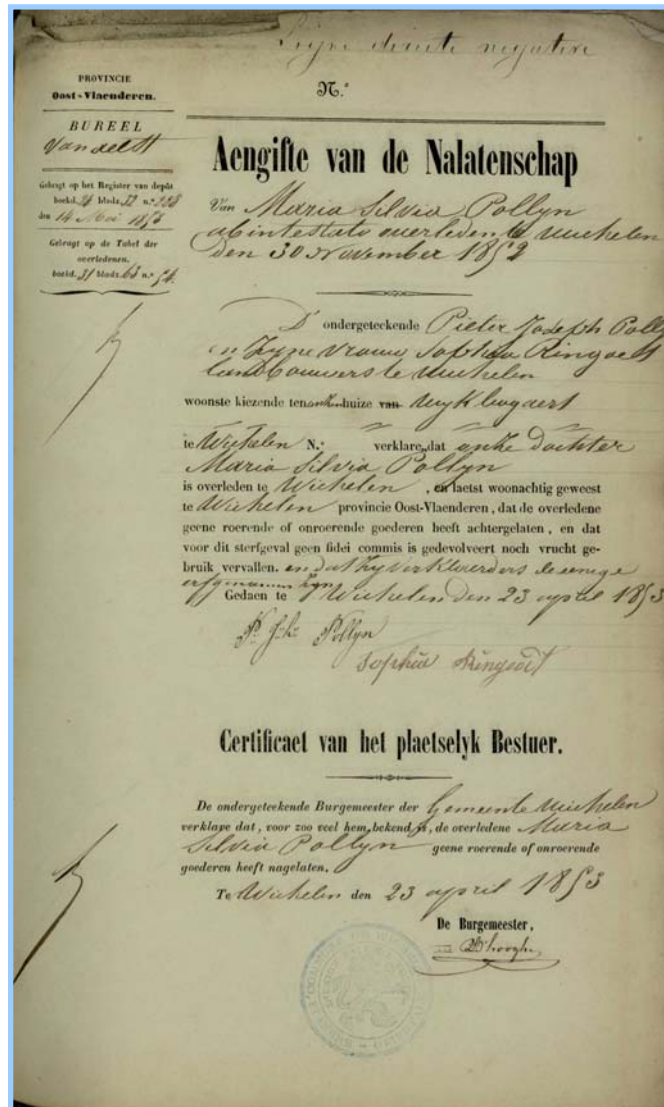 Ligne directe negative
N.º
PROVINCIE
Oost-Vlaenderen.
BUREEL
Van aelst
Gebragt op het Register van depôt
boekd. bladz. 32 n.º 228
den 14 Mei 1853
Gebragt op de Tabel der
overledenen.
boekd. 31 bladz. 63 n.º 54.
Aengifte van de Nalatenschap
Van Maria Silvia Pollyn
abintestato overleden te Wichelen
den 30 November 1852
D' ondergeteekende Pieter Joseph Poll
en zyne vrouw Sophia Ringoet
landbouwers te Wichelen
woonste kiezende ten huize van
te Wichelen N.º verklare, dat onze dochter
Maria Silvia Pollyn
is overleden te Wichelen , en laetst woonachtig geweest
te Wichelen provincie Oost-Vlaenderen, dat de overledene
geene roerende of onroerende goederen heeft achtergelaten, en dat
voor dit sterfgeval geen fidei commis is gedevolveert noch vrucht ge-
bruik vervallen. en dat zy verklaerders de eenige
erfgenamen zyn
Gedaen te Wichelen den 23 april 1853
P. Jph Pollyn
Sophia Ringoet
Certificaet van het plaetselyk Bestuer.
De ondergeteekende Burgemeester der Gemeente Wichelen
verklare dat, voor zoo veel hem bekend is, de overledene Maria
Silvia Pollyn geene roerende of onroerende
goederen heeft nagelaten.
Te Wichelen den 23 april 1853
De Burgemeester,